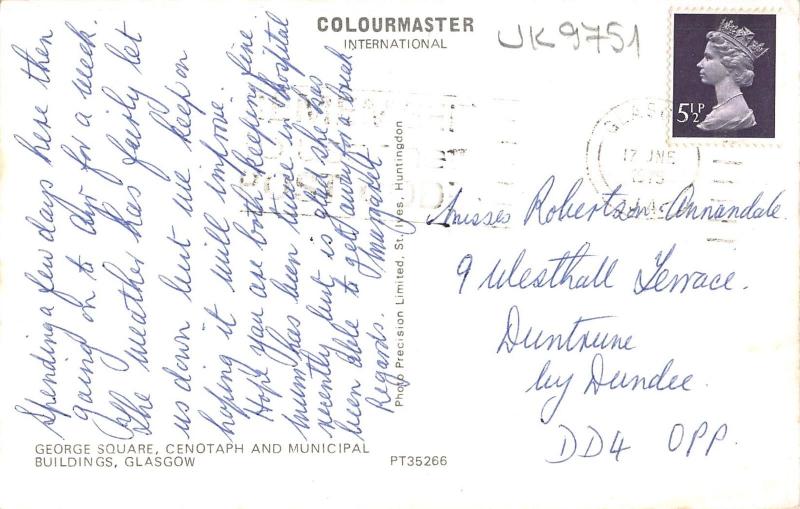 COLOURMASTER
INTERNATIONAL
UK9751
5½P
GLASGOW
17 JNE
1975
Spending a few days here then
going on to Ayr for a week.
The weather has fairly let
us down but we keep on
hoping it will improve.
Hope you are both keeping fine
Mum has been twice in hospital
recently but is glad she has
been able to get away for a break
Regards. Margaret
Photo Precision Limited, St. Ives, Huntingdon
Misses Robertson-Annandale.
9 Westhall Terrace.
Duntrune
by Dundee.
DD4 OPP.
GEORGE SQUARE, CENOTAPH AND MUNICIPAL
BUILDINGS, GLASGOW
PT35266